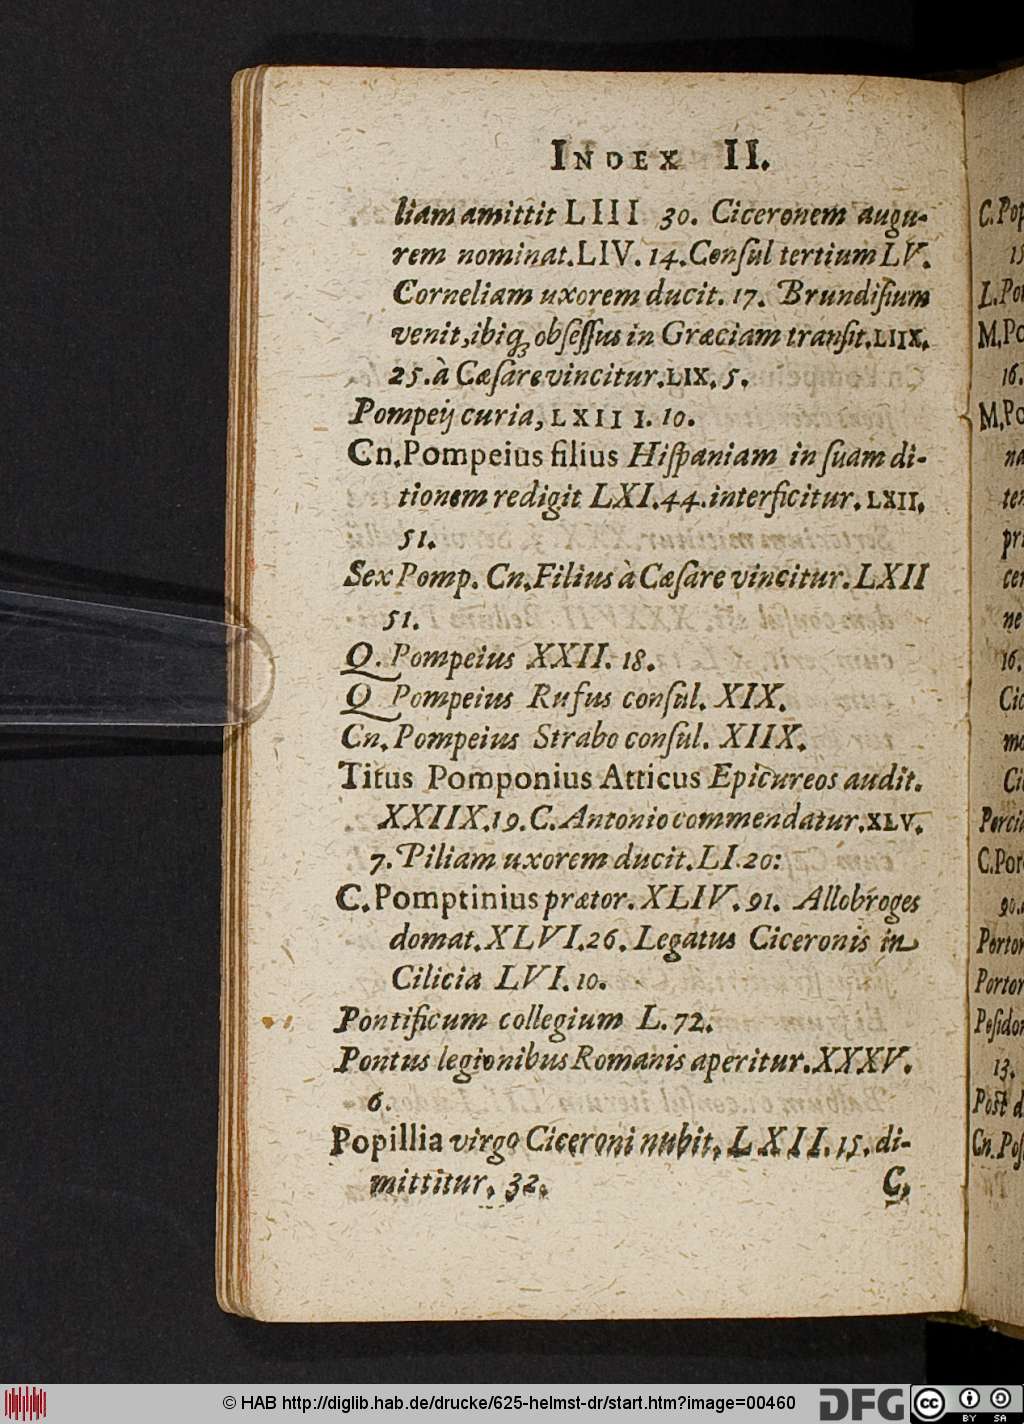 INDEX II.
liam amittit LIII 30. Ciceronem augu-
rem nominat. LIV. 14. Conſul tertium LV.
Corneliam uxorem ducit. 17. Brundiſium
venit, ibiq; obſeſſus in Græciam tranſit. LIIX.
25. à Cæſare vincitur. LIX. 5.
Pompeij curia, LXIII. 10.
Cn. Pompeius filius Hiſpaniam in ſuam di-
tionem redigit LXI. 44. interficitur. LXII.
51.
Sex Pomp. Cn. Filius à Cæſare vincitur. LXII
51.
Q. Pompeius XXII. 18.
Q Pompeius Rufus conſul. XIX.
Cn. Pompeius Strabo conſul. XIIX.
Titus Pomponius Atticus Epicureos audit.
XXIIX. 19. C. Antonio commendatur. XLV.
7. Piliam uxorem ducit. LI. 20:
C. Pomptinius prætor. XLIV. 91. Allobroges
domat. XLVI. 26. Legatus Ciceronis in
Cilicia LVI. 10.
Pontificum collegium L. 72.
Pontus legionibus Romanis aperitur. XXXV.
6.
Popillia virgo Ciceroni nubit. LXII. 15. di-
mittitur. 32.
C.
C. Pop
15
L. Po
M. Po
16.
M. Po
na
ter
pri
cer
ne
16.
Cic
mo
Cic
Porci
C. Por
90.
Portor
Portor
Poſido
13.
Poſt d
Cn. Poſ
© HAB http://diglib.hab.de/drucke/625-helmst-dr/start.htm?image=00460
DFG
cc
BY SA